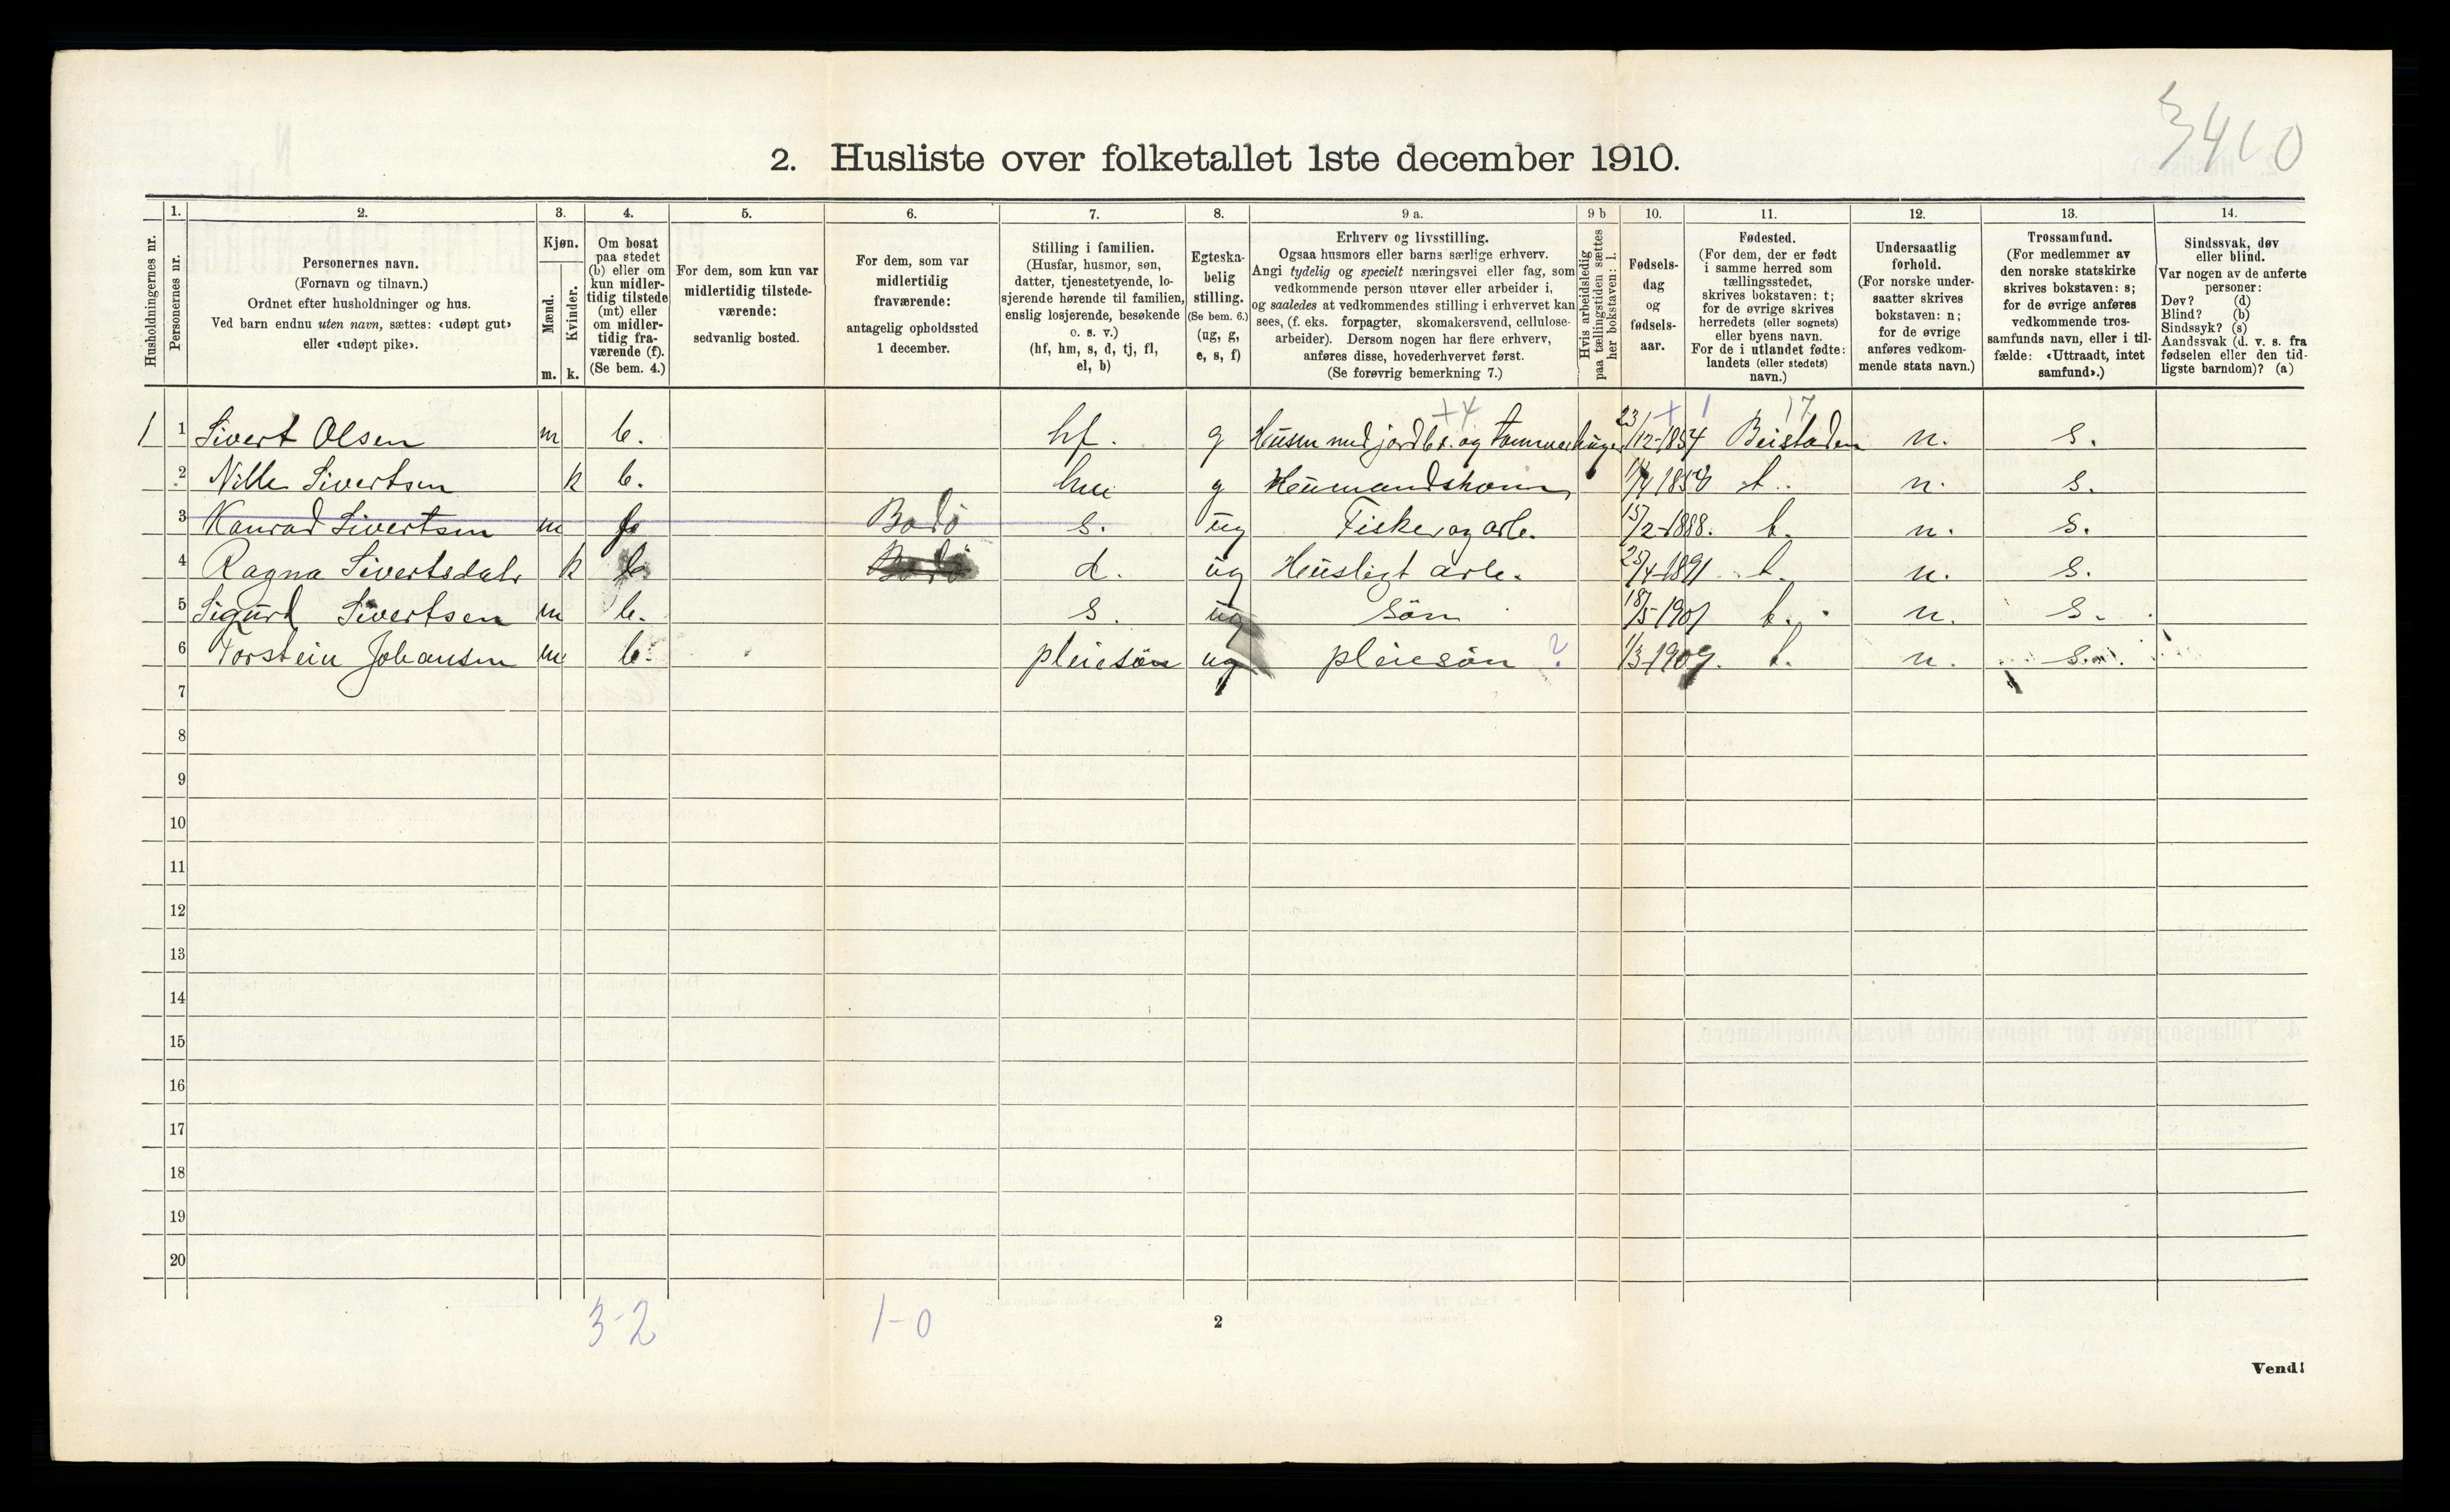 3410
2. Husliste over folketallet 1ste december 1910.
Husholdningernes nr.
1. Personernes nr.
2. Personernes navn.
(Fornavn og tilnavn.)
Ordnet efter husholdninger og hus.
Ved barn endnu uten navn, sættes: «udøpt gut»
eller «udøpt pike».
3. Kjøn.
Mænd. m.
Kvinder. k.
4. Om bosat
paa stedet
(b) eller om
kun midler-
tidig tilstede
(mt) eller
om midler-
tidig fra-
værende (f).
(Se bem. 4.)
5. For dem, som kun var
midlertidig tilstede-
værende:
sedvanlig bosted.
6. For dem, som var
midlertidig
fraværende:
antagelig opholdssted
1 december.
7. Stilling i familien.
(Husfar, husmor, søn,
datter, tjenestetyende, lo-
sjerende hørende til familien,
enslig losjerende, besøkende
o. s. v.)
(hf, hm, s, d, tj, fl,
el, b)
8. Egteska-
belig
stilling.
(Se bem. 6.)
(ug, g,
e, s, f)
9 a. Erhverv og livsstilling.
Ogsaa husmors eller barns særlige erhverv.
Angi tydelig og specielt næringsvei eller fag, som
vedkommende person utøver eller arbeider i,
og saaledes at vedkommendes stilling i erhvervet kan
sees, (f. eks. forpagter, skomakersvend, cellulose-
arbeider). Dersom nogen har flere erhverv,
anføres disse, hovederhvervet først.
(Se forøvrig bemerkning 7.)
9 b Hvis arbeidsledig
paa tællingstiden sættes
her bokstaven: l.
10. Fødsels-
dag
og
fødsels-
aar.
11. Fødested.
(For dem, der er født
i samme herred som
tællingsstedet,
skrives bokstaven: t;
for de øvrige skrives
herredets (eller sognets)
eller byens navn.
For de i utlandet fødte:
landets (eller stedets)
navn.)
12. Undersaatlig
forhold.
(For norske under-
saatter skrives
bokstaven: n;
for de øvrige
anføres vedkom-
mende stats navn.)
13. Trossamfund.
(For medlemmer av
den norske statskirke
skrives bokstaven: s;
for de øvrige anføres
vedkommende tros-
samfunds navn, eller i til-
fælde: «Uttraadt, intet
samfund».)
14. Sindssvak, døv
eller blind.
Var nogen av de anførte
personer:
Døv? (d)
Blind? (b)
Sindssyk? (s)
Aandssvak (d. v. s. fra
fødselen eller den tid-
ligste barndom)? (a)
+4 + 1 17
1 1 Sivert Olsen m b. hf. g Husm med jordbr. og tømmerhugger 23/12-1854 Beistaden n. s.
2 Nille Sivertsen k b. hm g Husmandskone t. n. s.
3 Konrad Sivertsen m f Bodö s. ug Fisker og arb. 15/2-1888. t. n. s.
4 Ragna Sivertsdatr k b Bodö d. ug Husligt arb. 25/4-1891 t. n. s.
5 Sigurd Sivertsen m b. s. ug Sön 18/5-1901 t. n. s.
6 Torstein Johansen m b. pleiesön ug pleiesön ? 1/3-1909. t. n. s.
7
8
9
10
11
12
13
14
15
16
17
18
19
20
3-2 1-0
2
Vend!